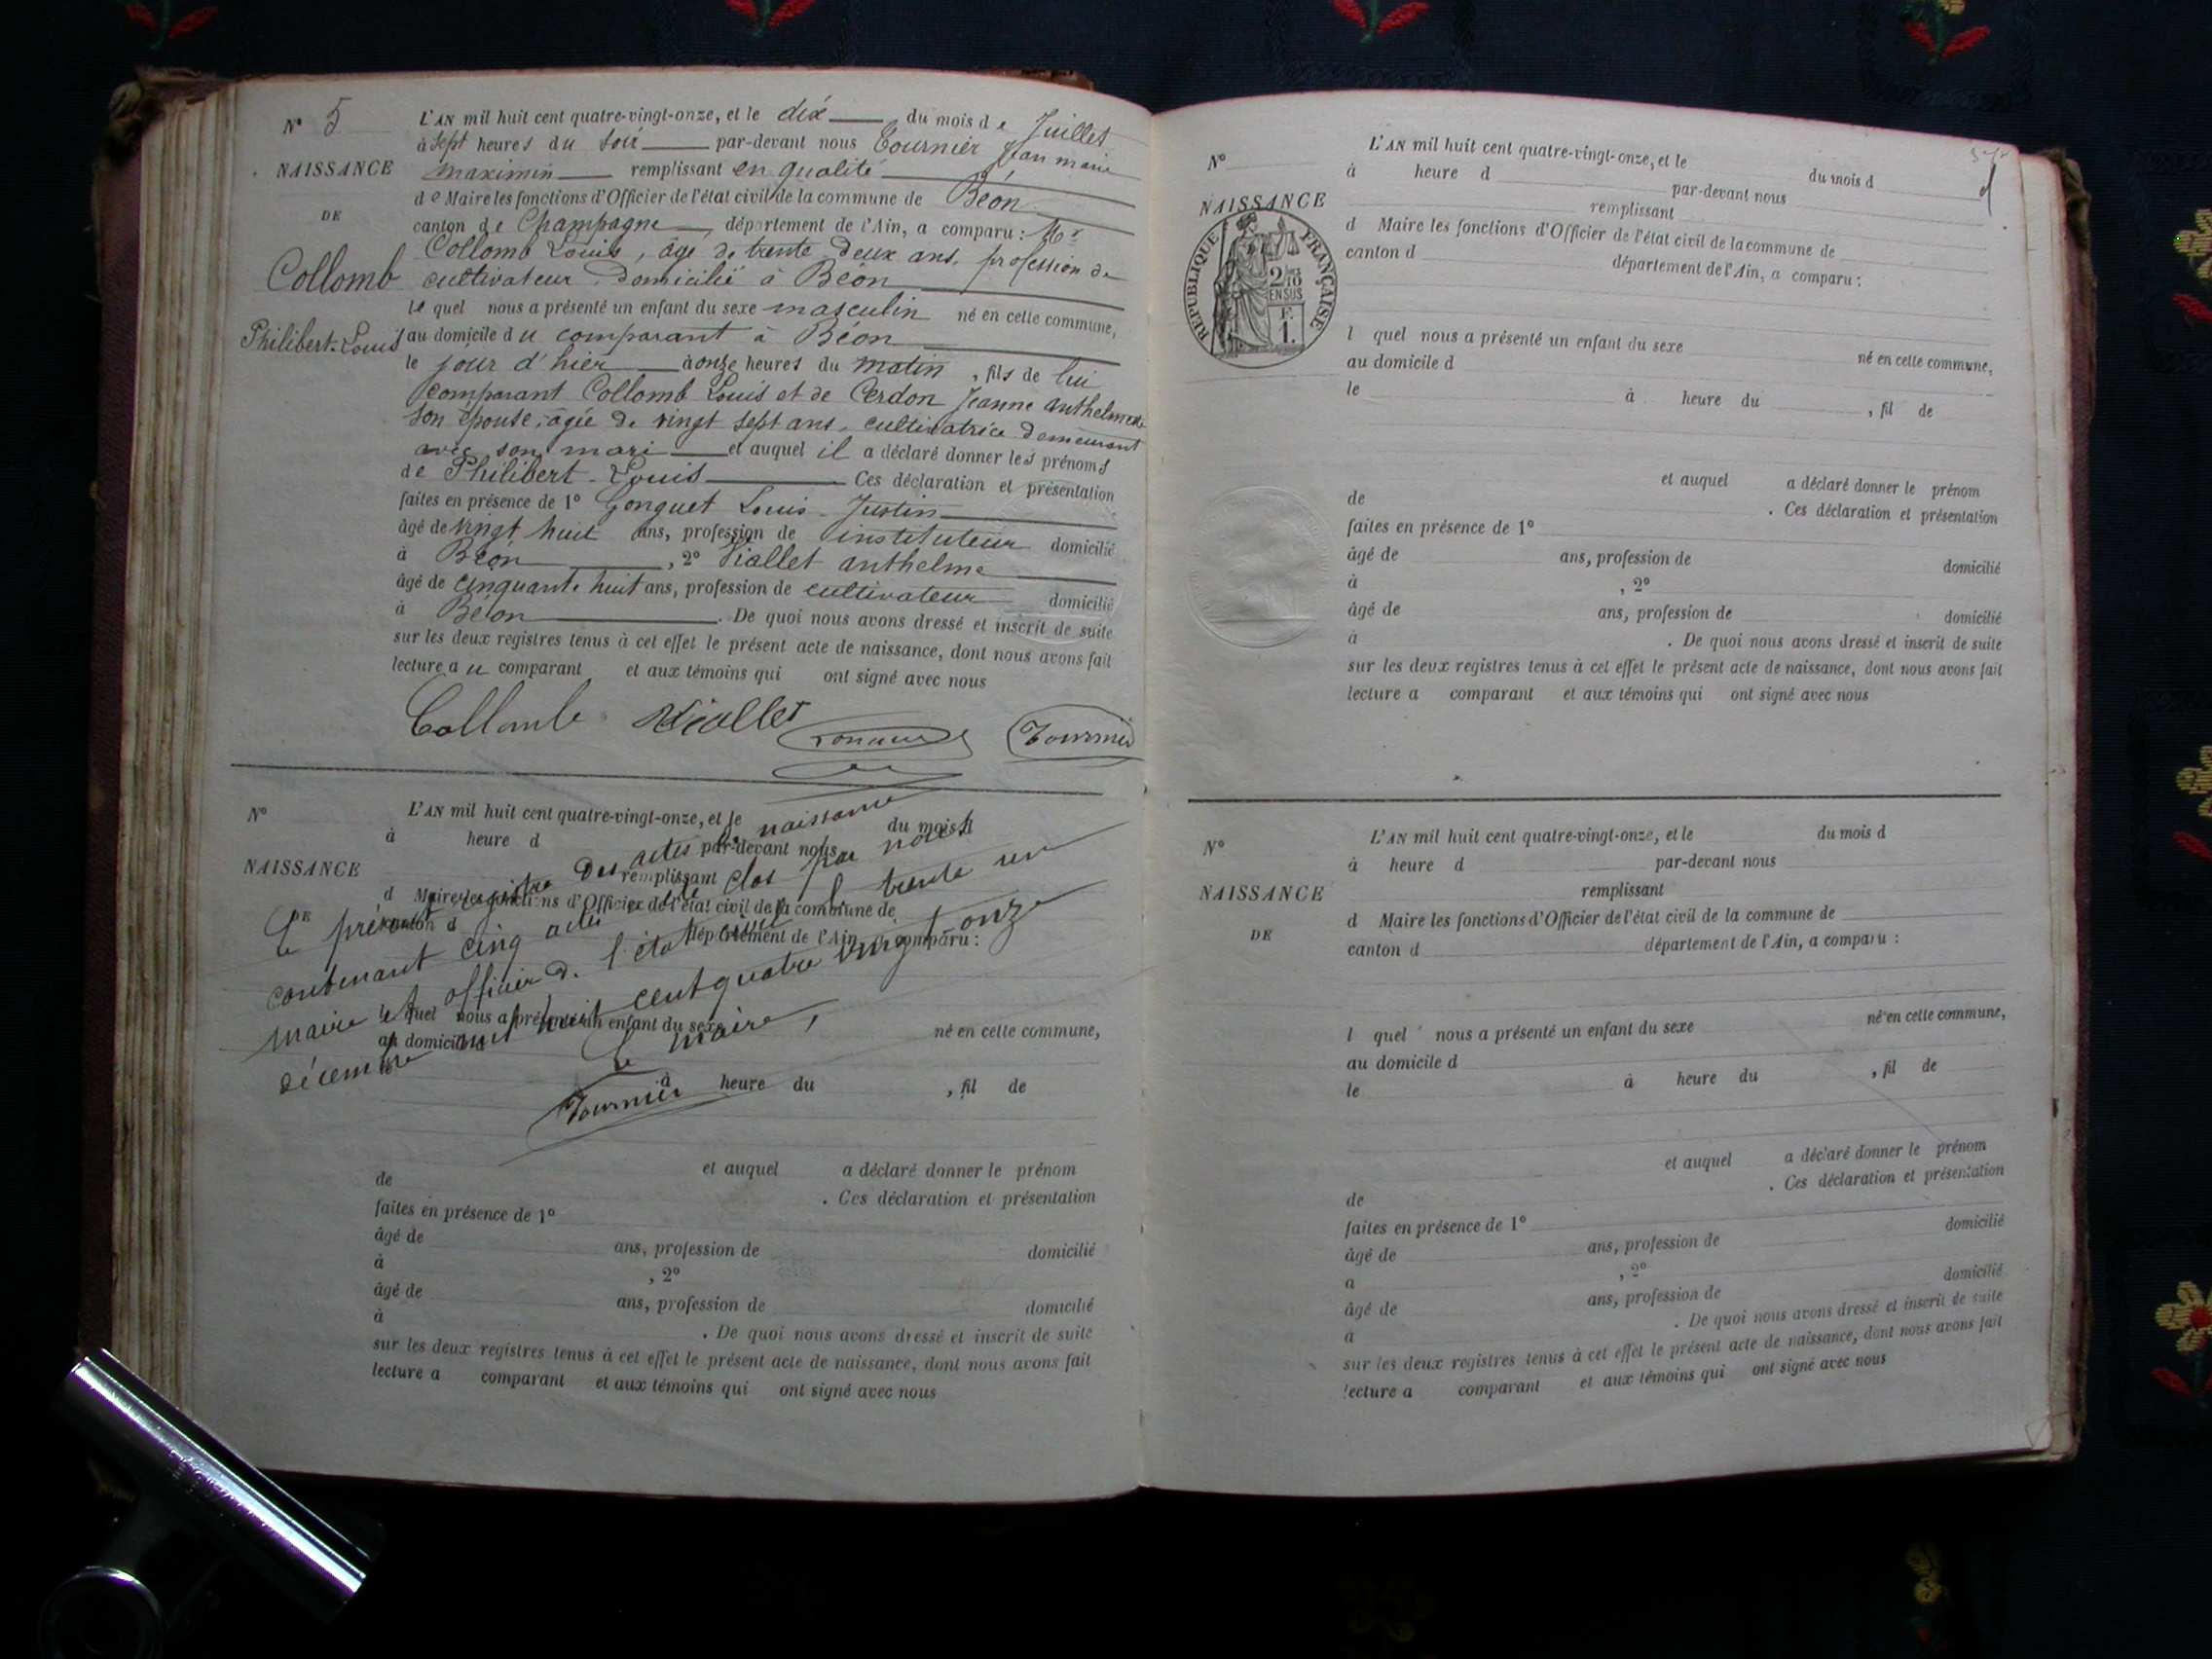 N° 5
NAISSANCE
DE
Collomb
Philibert-Louis
L'AN mil huit cent quatre-vingt-onze, et le dix du mois de Juillet
à sept heures du soir par-devant nous Tournier Jean marie
maximin remplissant en qualité
de Maire les fonctions d'Officier de l'état civil de la commune de Béon
canton de Champagne, département de l'Ain, a comparu : Mr
Collomb Louis, âgé de trente deux ans, profession de
cultivateur, domicilié à Béon
lequel nous a présenté un enfant du sexe masculin né en cette commune,
au domicile du comparant à Béon
le jour d'hier à onze heures du matin, fils de lui
comparant Collomb Louis et de Cerdon Jeanne anthelmette
son épouse, âgée de vingt sept ans, cultivatrice demeurant
avec son mari et auquel il a déclaré donner les prénoms
de Philibert-Louis Ces déclaration et présentation
faites en présence de 1° Gonguet Louis-Justin
âgé de vingt huit ans, profession de instituteur domicilié
à Béon, 2° Viallet anthelme
âgé de cinquante huit ans, profession de cultivateur domicilié
à Béon. De quoi nous avons dressé et inscrit de suite
sur les deux registres tenus à cet effet le présent acte de naissance, dont nous avons fait
lecture au comparant et aux témoins qui ont signé avec nous
Collomb Viallet Tournier
N°
NAISSANCE
DE
L'AN mil huit cent quatre-vingt-onze, et le du mois d
à heure d par-devant nous
remplissant
d Maire les fonctions d'Officier de l'état civil de la commune de
canton d département de l'Ain, a comparu :
l quel nous a présenté un enfant du sexe né en cette commune,
au domicile d
le à heure du , fil de
Le présent registre des actes de naissance
contenant cinq actes a été clos par nous
maire et officier de l'état civil le trente un
décembre mil huit cent quatre vingt onze
Le maire,
Tournier
et auquel a déclaré donner le prénom
de . Ces déclaration et présentation
faites en présence de 1°
âgé de ans, profession de domicilié
à , 2°
âgé de ans, profession de domicilié
à . De quoi nous avons dressé et inscrit de suite
sur les deux registres tenus à cet effet le présent acte de naissance, dont nous avons fait
lecture a comparant et aux témoins qui ont signé avec nous
N°
NAISSANCE
RÉPUBLIQUE FRANÇAISE
2/10
EN SUS
F.
1.
L'AN mil huit cent quatre-vingt-onze, et le du mois d
à heure d par-devant nous
remplissant
d Maire les fonctions d'Officier de l'état civil de la commune de
canton d département de l'Ain, a comparu :
l quel nous a présenté un enfant du sexe né en cette commune,
au domicile d
le à heure du , fil de
et auquel a déclaré donner le prénom
de . Ces déclaration et présentation
faites en présence de 1°
âgé de ans, profession de domicilié
à , 2°
âgé de ans, profession de domicilié
à . De quoi nous avons dressé et inscrit de suite
sur les deux registres tenus à cet effet le présent acte de naissance, dont nous avons fait
lecture a comparant et aux témoins qui ont signé avec nous
N°
NAISSANCE
DE
L'AN mil huit cent quatre-vingt-onze, et le du mois d
à heure d par-devant nous
remplissant
d Maire les fonctions d'Officier de l'état civil de la commune de
canton d département de l'Ain, a comparu :
l quel nous a présenté un enfant du sexe né en cette commune,
au domicile d
le à heure du , fil de
et auquel a déclaré donner le prénom
de . Ces déclaration et présentation
faites en présence de 1°
âgé de ans, profession de domicilié
à , 2°
âgé de ans, profession de domicilié
à . De quoi nous avons dressé et inscrit de suite
sur les deux registres tenus à cet effet le présent acte de naissance, dont nous avons fait
lecture a comparant et aux témoins qui ont signé avec nous